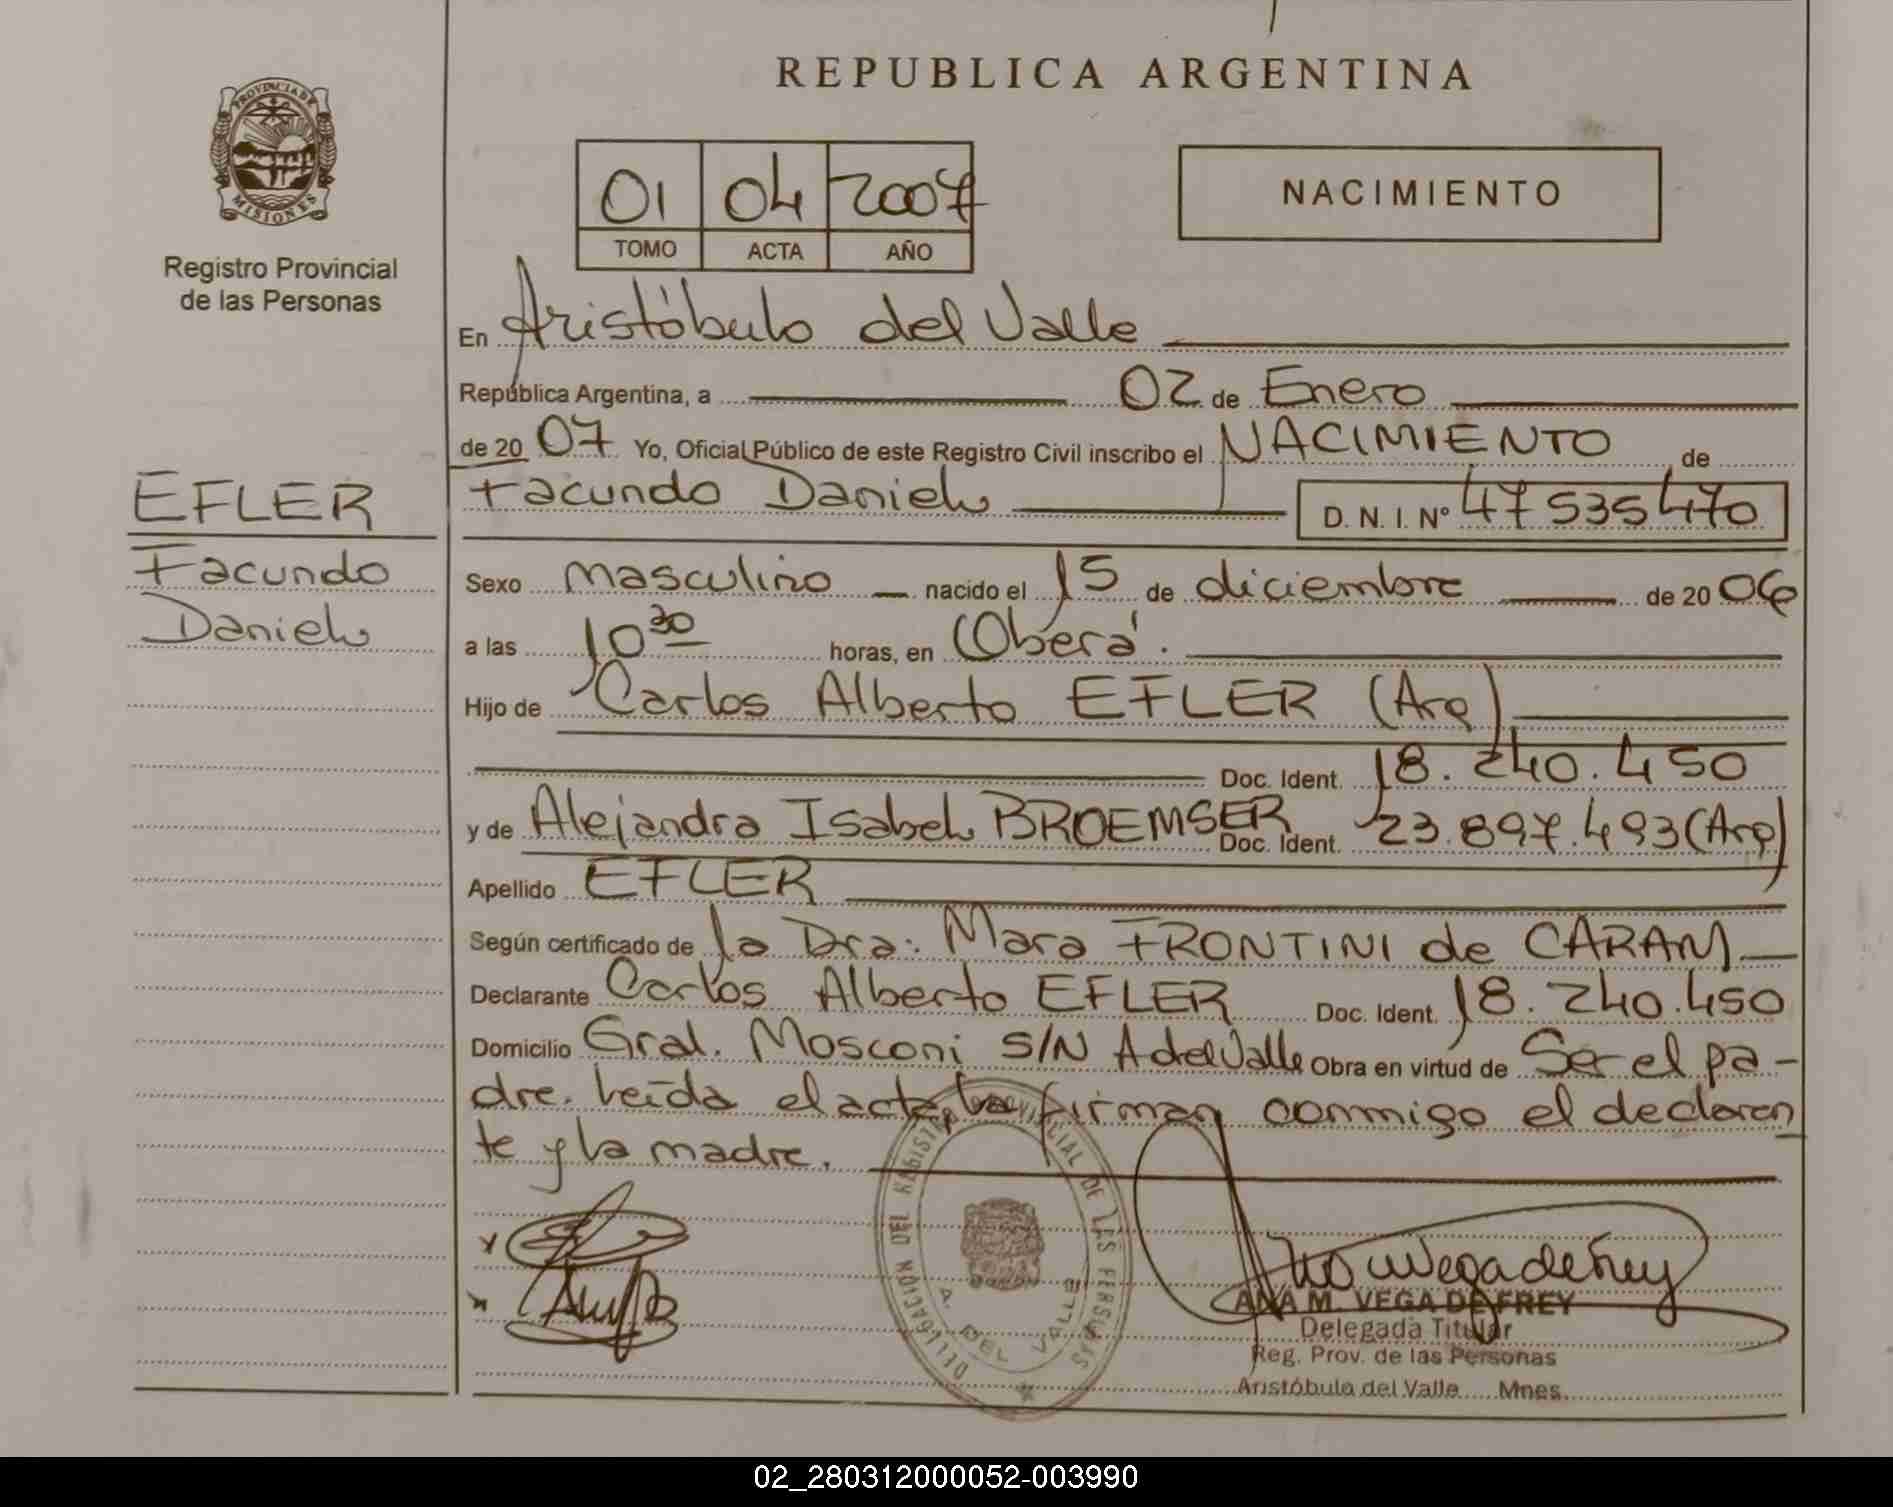 REPUBLICA ARGENTINA
PROVINCIA DE
MISIONES
Registro Provincial
de las Personas
01 04 2007
TOMO ACTA AÑO
NACIMIENTO
En Aristóbulo del Valle
República Argentina, a 02 de Enero
de 2007 Yo, Oficial Público de este Registro Civil inscribo el NACIMIENTO de
Facundo Daniel D. N. I. Nº 47535470
EFLER
Facundo
Daniel
Sexo masculino nacido el 15 de diciembre de 2006
a las 10 30 horas, en Oberá.
Hijo de Carlos Alberto EFLER (Arg)
Doc. Ident. 18.240.450
y de Alejandra Isabel BROEMSER Doc. Ident. 23.897.493 (Arg)
Apellido EFLER
Según certificado de la Dra: Mara FRONTINI de CARAM
Declarante Carlos Alberto EFLER Doc. Ident. 18.240.450
Domicilio Gral. Mosconi S/N A del Valle Obra en virtud de Ser el pa-
dre. Leída el acta, la firman conmigo el declaran
te y la madre.
DELEGACIÓN DEL REGISTRO PROVINCIAL DE LAS PERSONAS
A. DEL VALLE
ANA M. VEGA DE FREY
Delegada Titular
Reg. Prov. de las Personas
Aristóbulo del Valle Mnes.
02_280312000052-003990